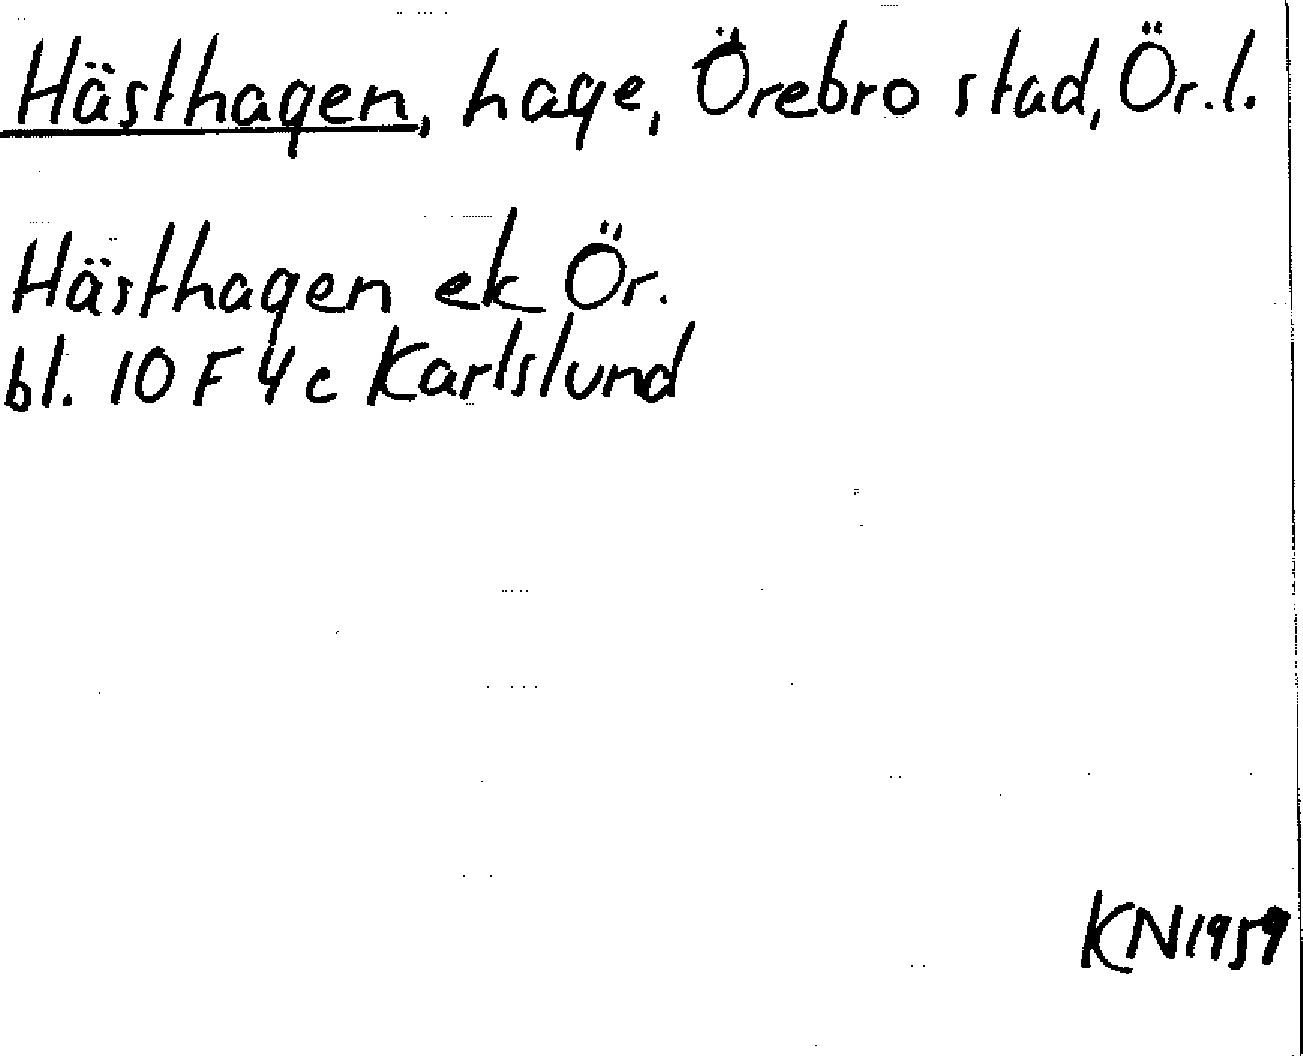 Hästhagen, hage, Örebro stad, Ör.l.
Hästhagen ek Ör.
bl. 10 F 4 c Karlslund
KN 1959